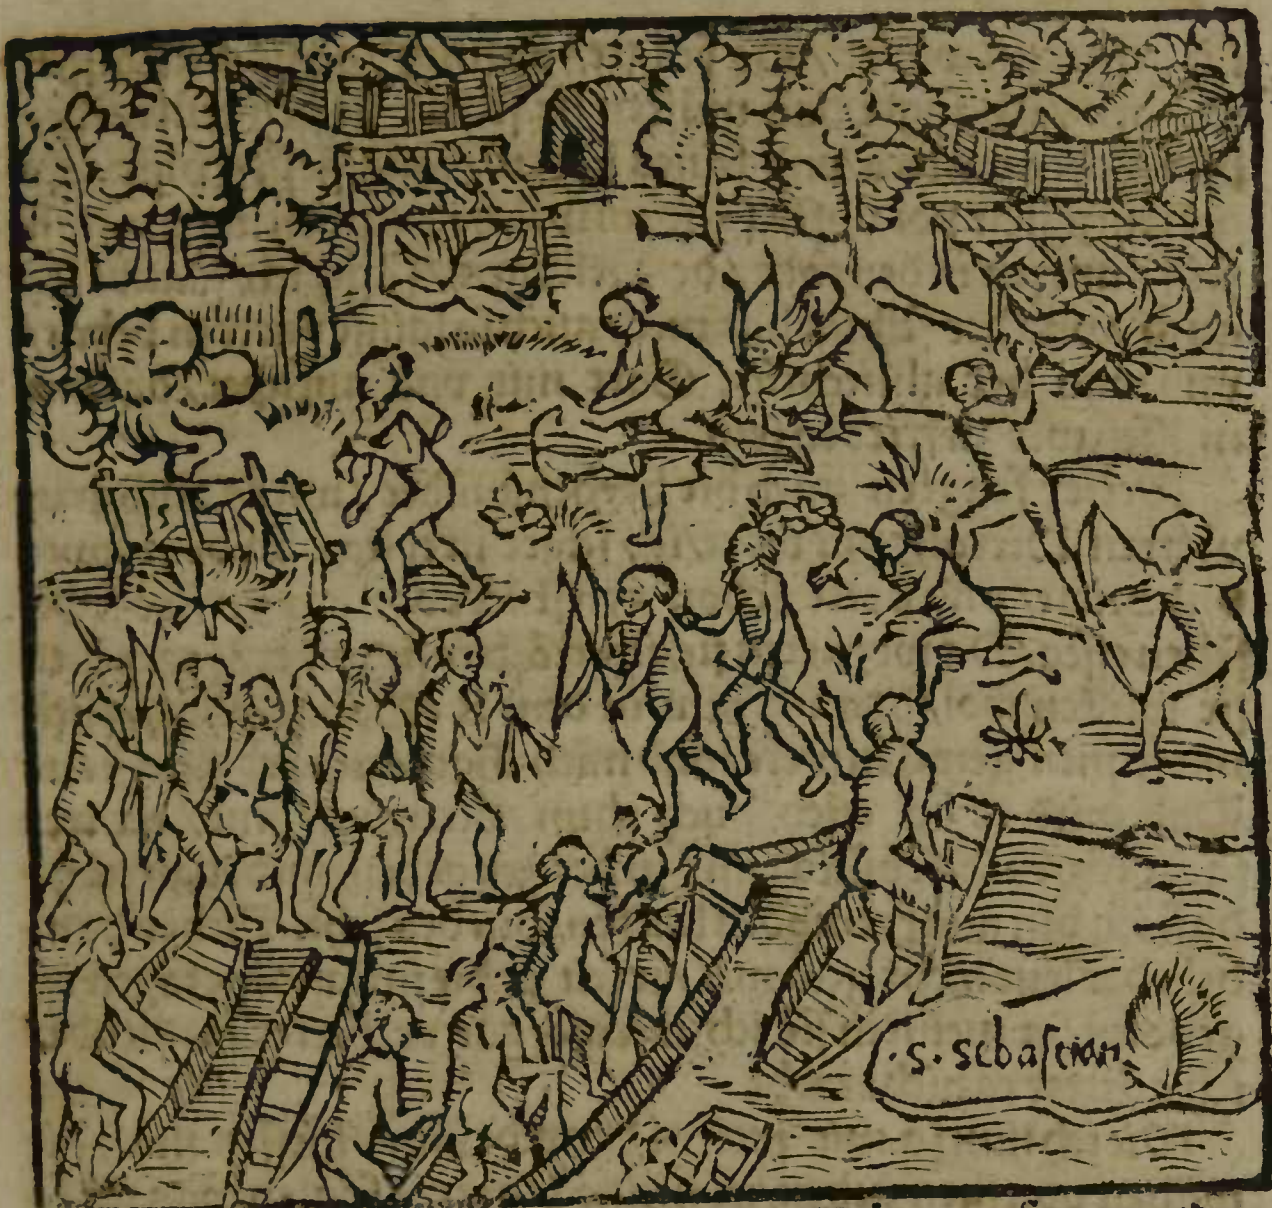 .s. sebaſtian